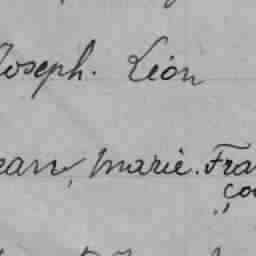 Joseph. Léon
ean, Marie. Fra
ço